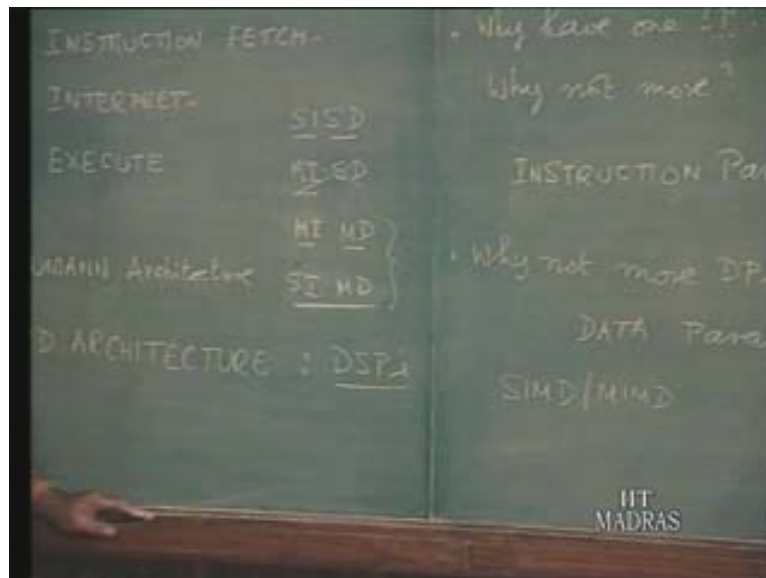 INSTRUCTION FETCH-
INTERPRET-
SISD
EXECUTE
MISD
MI MD
UMANN Architecture SI MD
D ARCHITECTURE : DSPs
• Why have one !!
Why not more?
INSTRUCTION Par
• Why not more DP
DATA Para
SIMD/MIMD
IIT
MADRAS